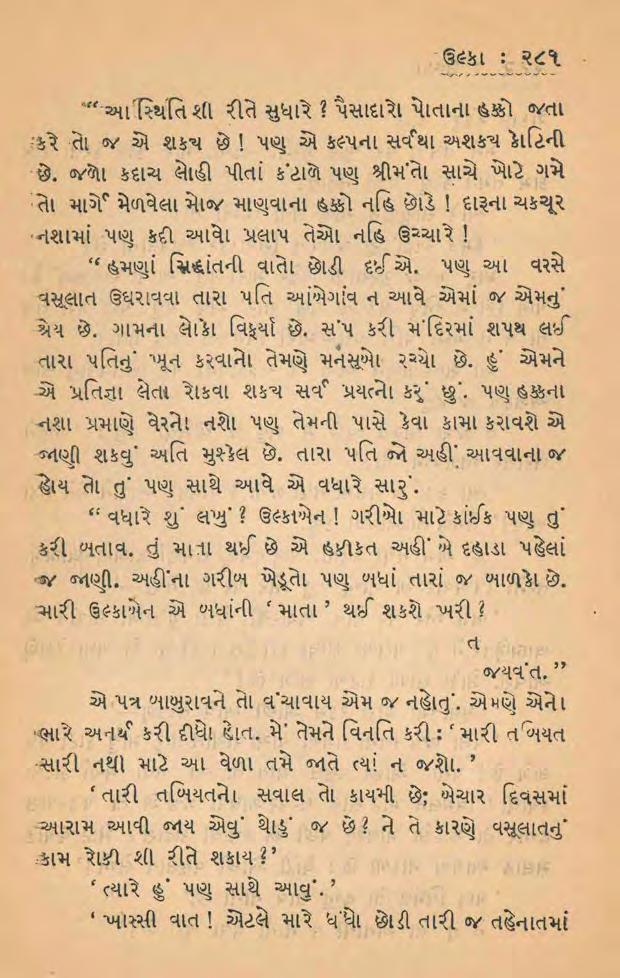 ઉલ્કા : ૨૮૧
“ આ સ્થિતિ શી રીતે સુધારે ? પૈસાદારો પોતાના હક્કો જતા
કરે તો જ એ શકય છે ! પણ એ કલ્પના સર્વથા અશકય કોટિની
છે. જળો કદાચ લોહી પીતાં કંટાળે પણ શ્રીમંતો સાચે ખોટે ગમે
તો માર્ગે મેળવેલા મોજ માણવાના હક્કો નહિ છોડે ! દારૂના ચકચૂર
નશામાં પણ કદી આવો પ્રલાપ તેઓ નહિ ઉચ્ચારે !
“ હમણાં સિદ્ધાંતની વાતો છોડી દઈએ. પણ આ વરસે
વસૂલાત ઉઘરાવવા તારા પતિ આંબેગાંવ ન આવે એમાં જ એમનું
શ્રેય છે. ગામના લોકો વિફર્યા છે. સંપ કરી મંદિરમાં શપથ લઈ
તારા પતિનું ખૂન કરવાનો તેમણે મનસૂબો રચ્યો છે. હું એમને
એ પ્રતિજ્ઞા લેતા રોકવા શકય સર્વ પ્રયત્નો કરું છું. પણ હક્કના
નશા પ્રમાણે વેરનો નશો પણ તેમની પાસે કેવા કામો કરાવશે એ
જાણી શકવું અતિ મુશ્કેલ છે. તારા પતિ જો અહીં આવવાના જ
હોય તો તું પણ સાથે આવે એ વધારે સારું.
“ વધારે શું લખું ? ઉલ્કાબેન ! ગરીબો માટે કાંઈક પણ તું
કરી બતાવ. તું માતા થઈ છે એ હકીકત અહીં બે દહાડા પહેલાં
જ જાણી. અહીંના ગરીબ ખેડૂતો પણ બધાં તારાં જ બાળકો છે.
મારી ઉલ્કાબેન એ બધાંની ‘ માતા ’ થઈ શકશે ખરી ?
ત
જયવંત. ”
એ પત્ર બાબુરાવને તો વંચાવાય એમ જ નહોતું. એમણે એનો
ભારે અનર્થ કરી દીધો હોત. મેં તેમને વિનતિ કરી : ‘ મારી તબિયત
સારી નથી માટે આ વેળા તમે જાતે ત્યાં ન જશો. ’
‘ તારી તબિયતનો સવાલ તો કાયમી છે; બેચાર દિવસમાં
આરામ આવી જાય એવું થોડું જ છે ? ને તે કારણે વસૂલાતનું
કામ રોકી શી રીતે શકાય ?’
‘ ત્યારે હું પણ સાથે આવું. ’
‘ ખાસ્સી વાત ! એટલે મારે ધંધો છોડી તારી જ તહેનાતમાં